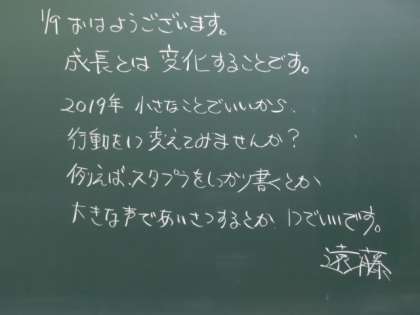 1/9 おはようございます。
成長とは 変化することです。
2019年 小さなことでいいから、
行動を1つ変えてみませんか?
例えば、スタプラをしっかり書くとか、
大きな声であいさつするとか、1つでいいです。
遠藤